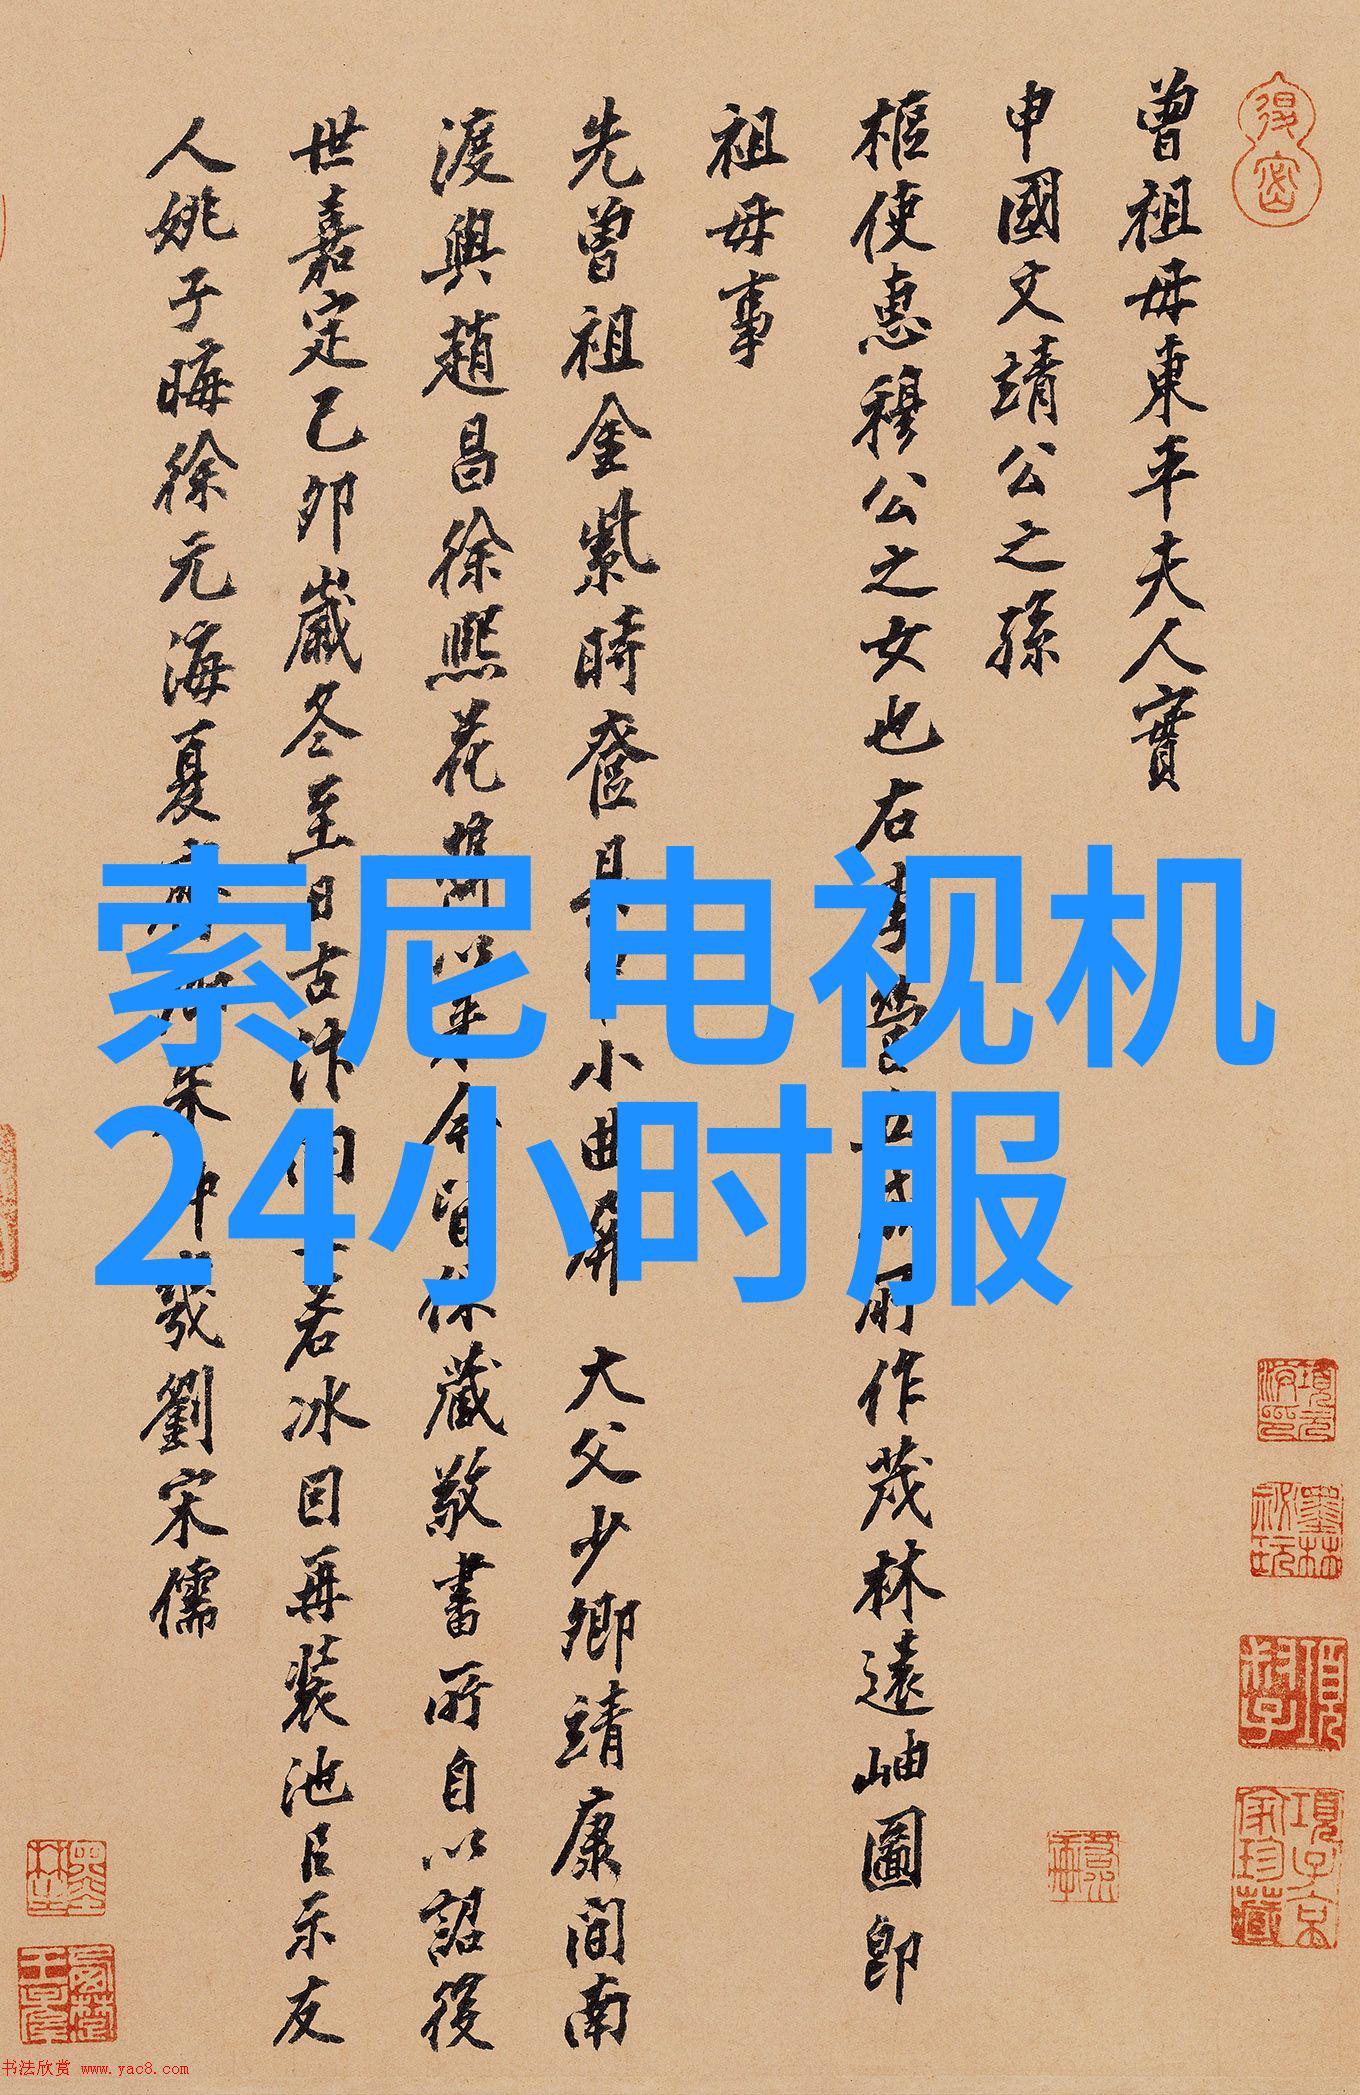 曾祖母東平夫人實
申國文靖公之孫
樞使惠穆公之女也右
作茂林遠岫圖即
祖母事
先曾祖金紫時
小曲屏
大父少卿靖康間南
渡與趙昌徐熙花
今皆保藏敬書所自以詔後
世嘉定己卯歲冬至日古汴
若冰因再裝池呂示友
人姚子晦徐元海夏
劉宋儒
索尼电视机
24小时服
書法欣赏 www.yac8.com